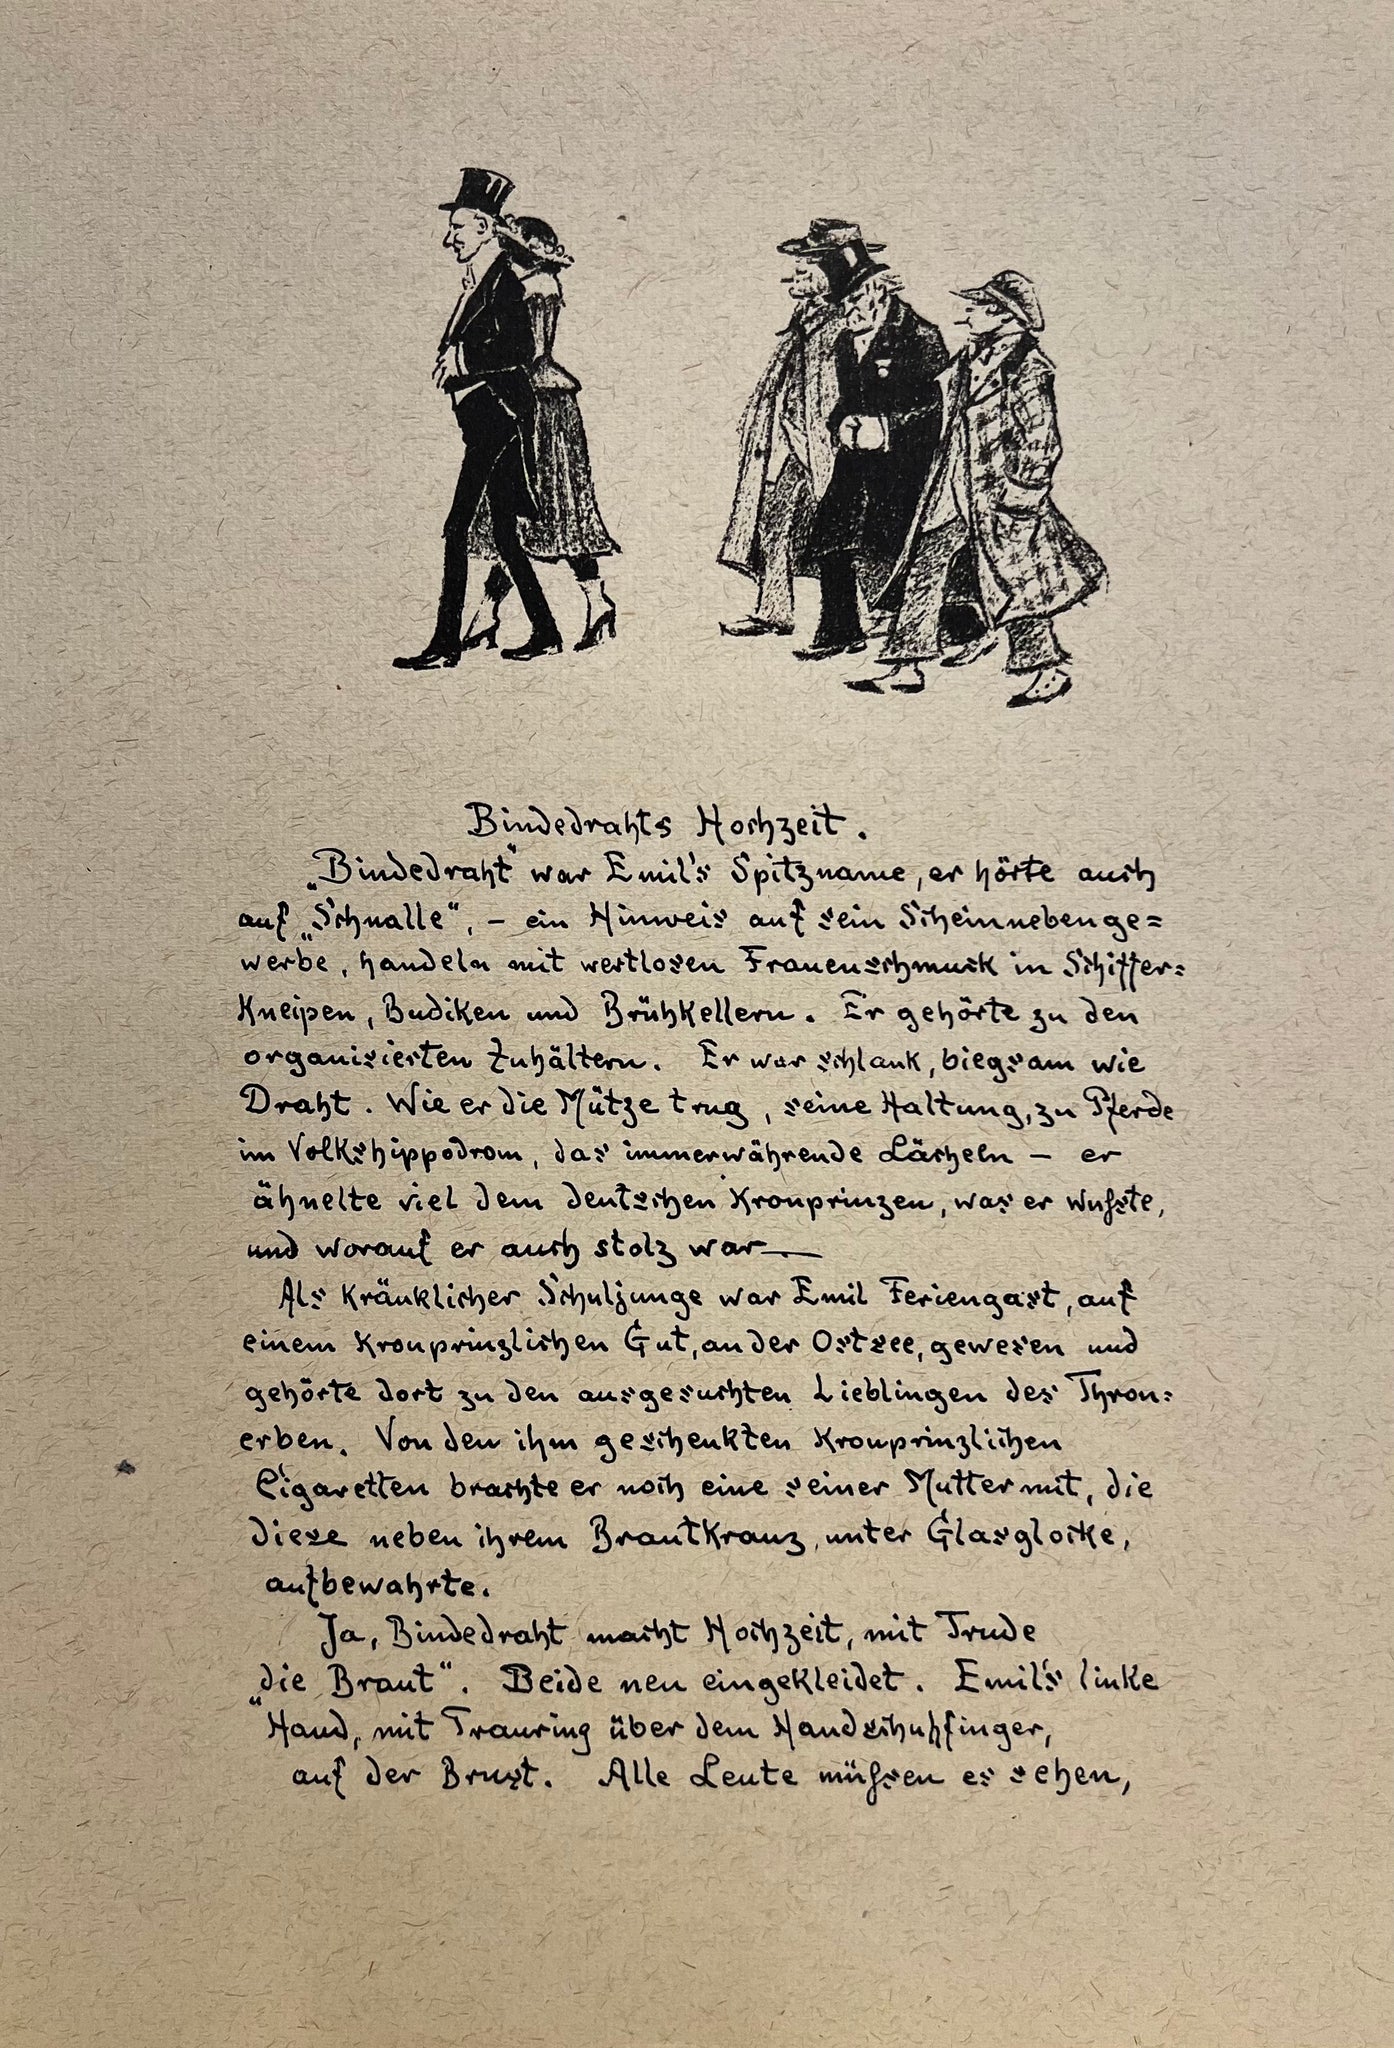 Bindedrahts Hochzeit.
„Bindedraht“ war Emil's Spitzname, er hörte auch
auf „Schnalle“, – ein Hinweis auf sein Scheinnebenge=
werbe, handeln mit wertlosen Frauenschmuck in Schiffer=
kneipen, Budiken und Brühkellern. Er gehörte zu den
organisierten Zuhältern. Er war schlank, biegsam wie
Draht. Wie er die Mütze trug, seine Haltung, zu Pferde
im Volkshippodrom, das immerwährende Lächeln – er
ähnelte viel dem deutschen Kronprinzen, was er wußte,
und worauf er auch stolz war—
Als kränklicher Schuljunge war Emil Feriengast, auf
einem kronprinzlichen Gut, an der Ostsee, gewesen und
gehörte dort zu den ausgesuchten Lieblingen des Thron=
erben. Von den ihm geschenkten kronprinzlichen
Cigaretten brachte er noch eine seiner Mutter mit, die
diese neben ihrem Brautkranz, unter Glasglocke,
aufbewahrte.
Ja, Bindedraht macht Hochzeit, mit Trude
„die Braut“. Beide neu eingekleidet. Emil's linke
Hand, mit Trauring über dem Handschuhfinger,
auf der Brust. Alle Leute müßen es sehen,